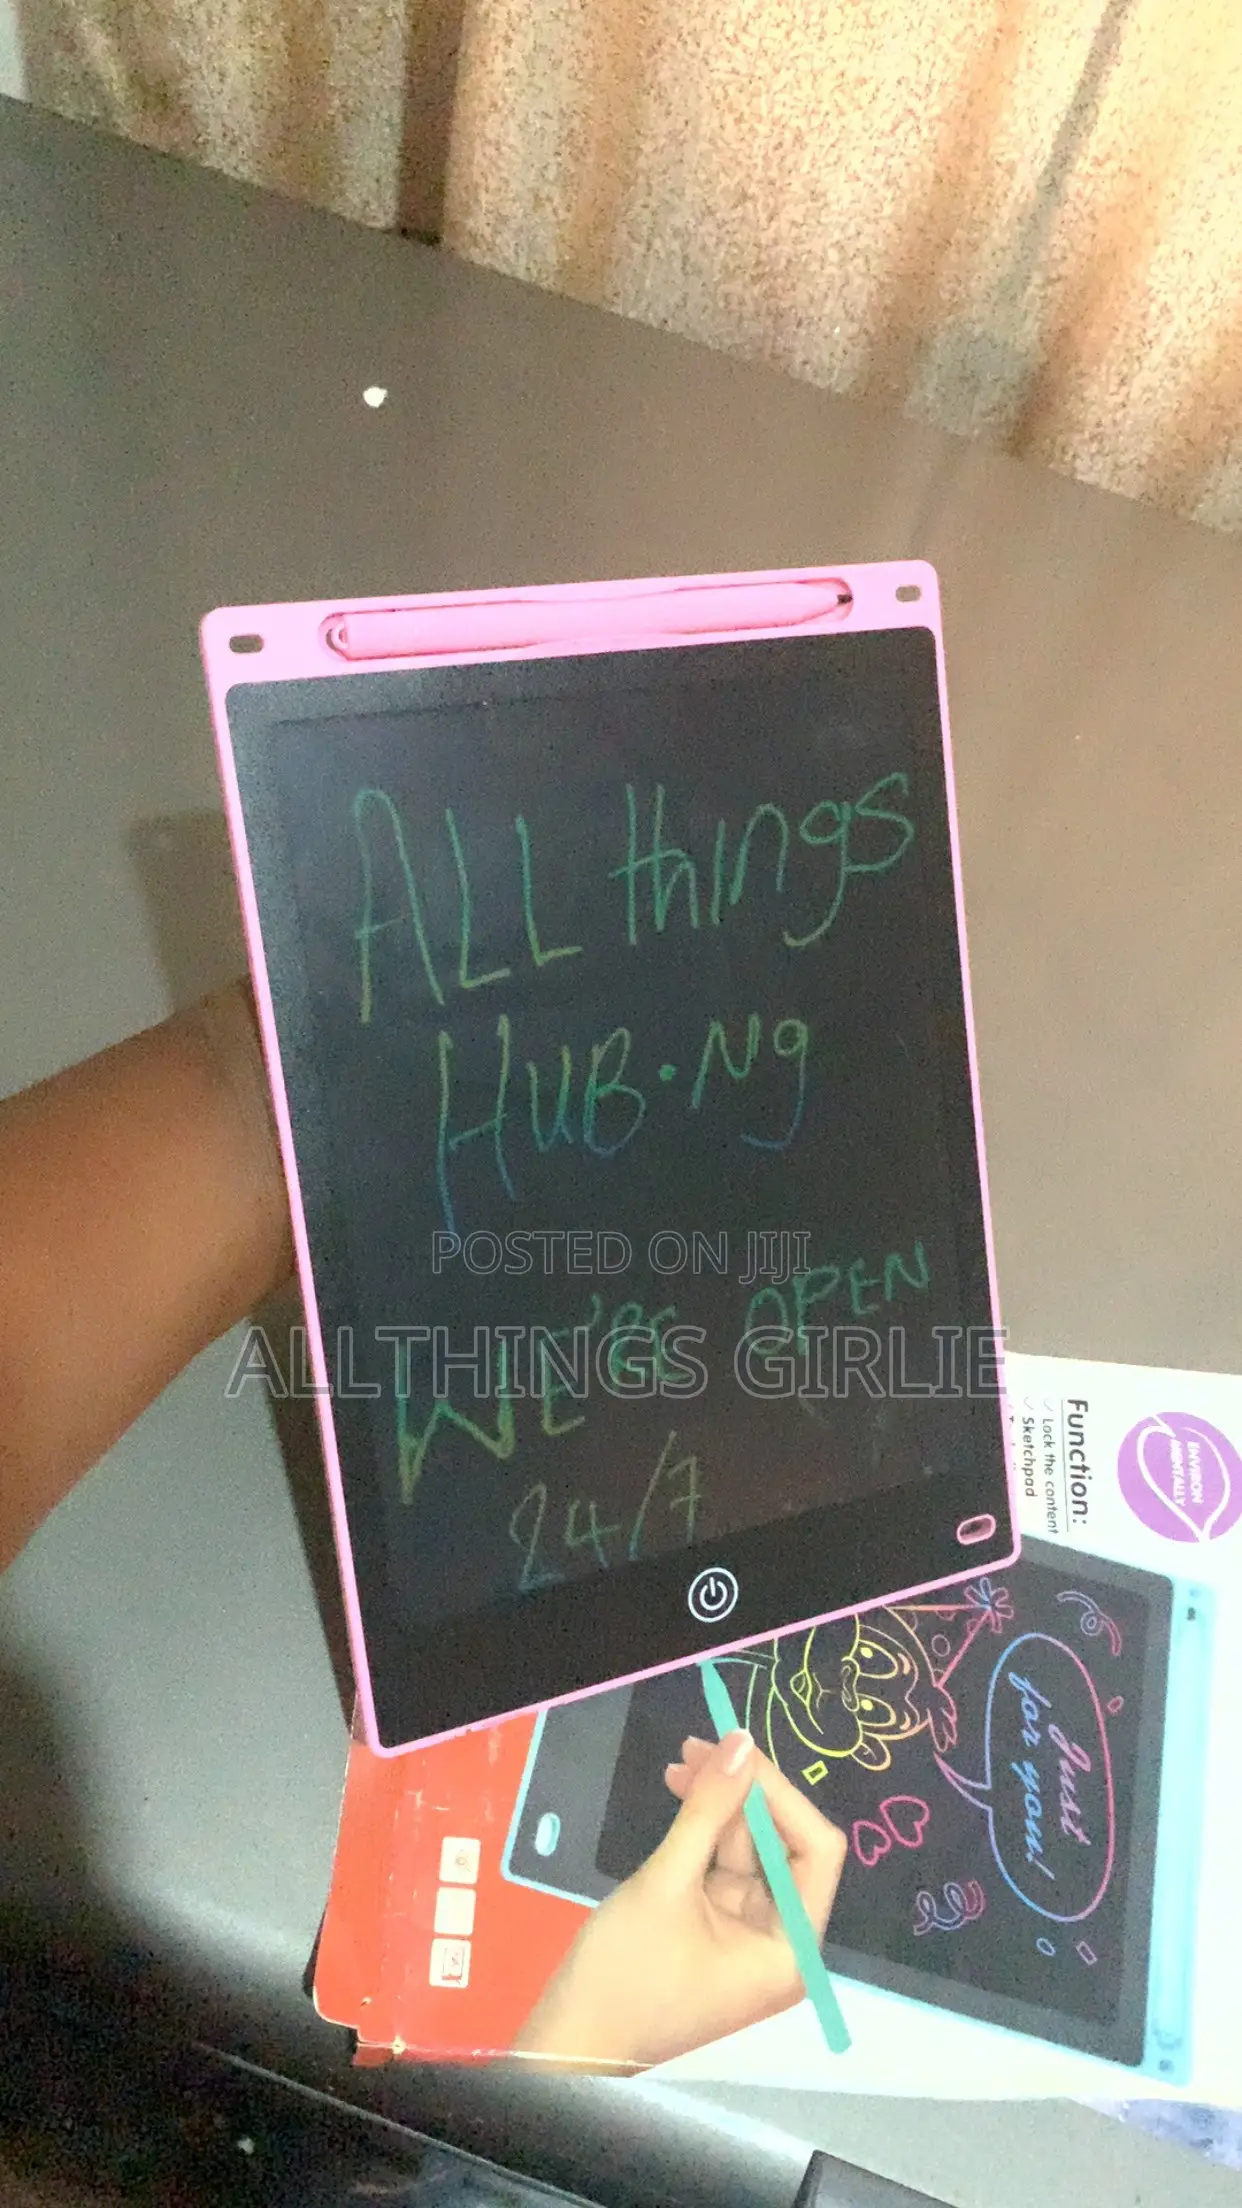 ALL things
HUB.Ng
POSTED ON JIJI
WE'RE OPEN
ALLTHINGS GIRLIE
24/7
ENVIRON
MENTALLY
Function:
✓ Lock the content
✓ Sketchpad
Just
for you!